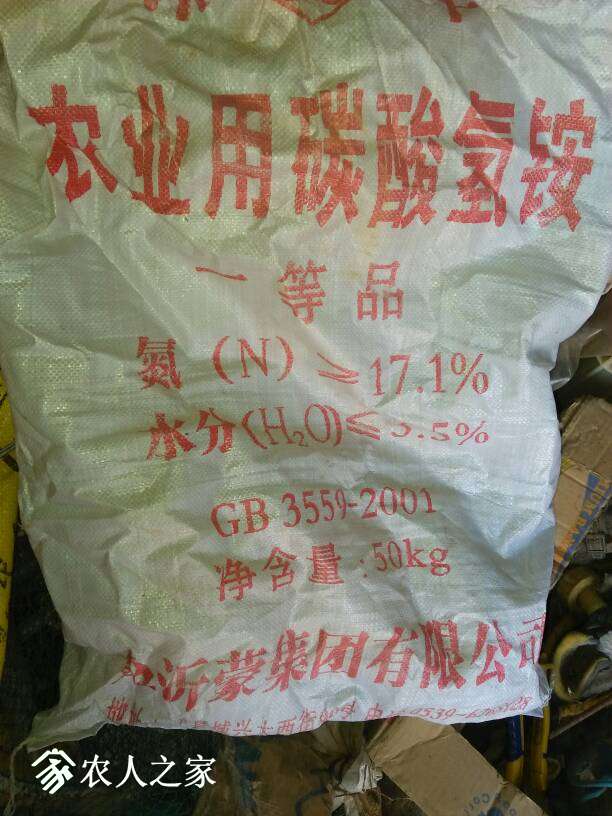 农业用碳酸氢铵
一等品
氮(N)≥17.1%
水分(H₂O)≤3.5%
GB 3559-2001
净含量:50kg
沂蒙集团有限公司
0539-
农人之家